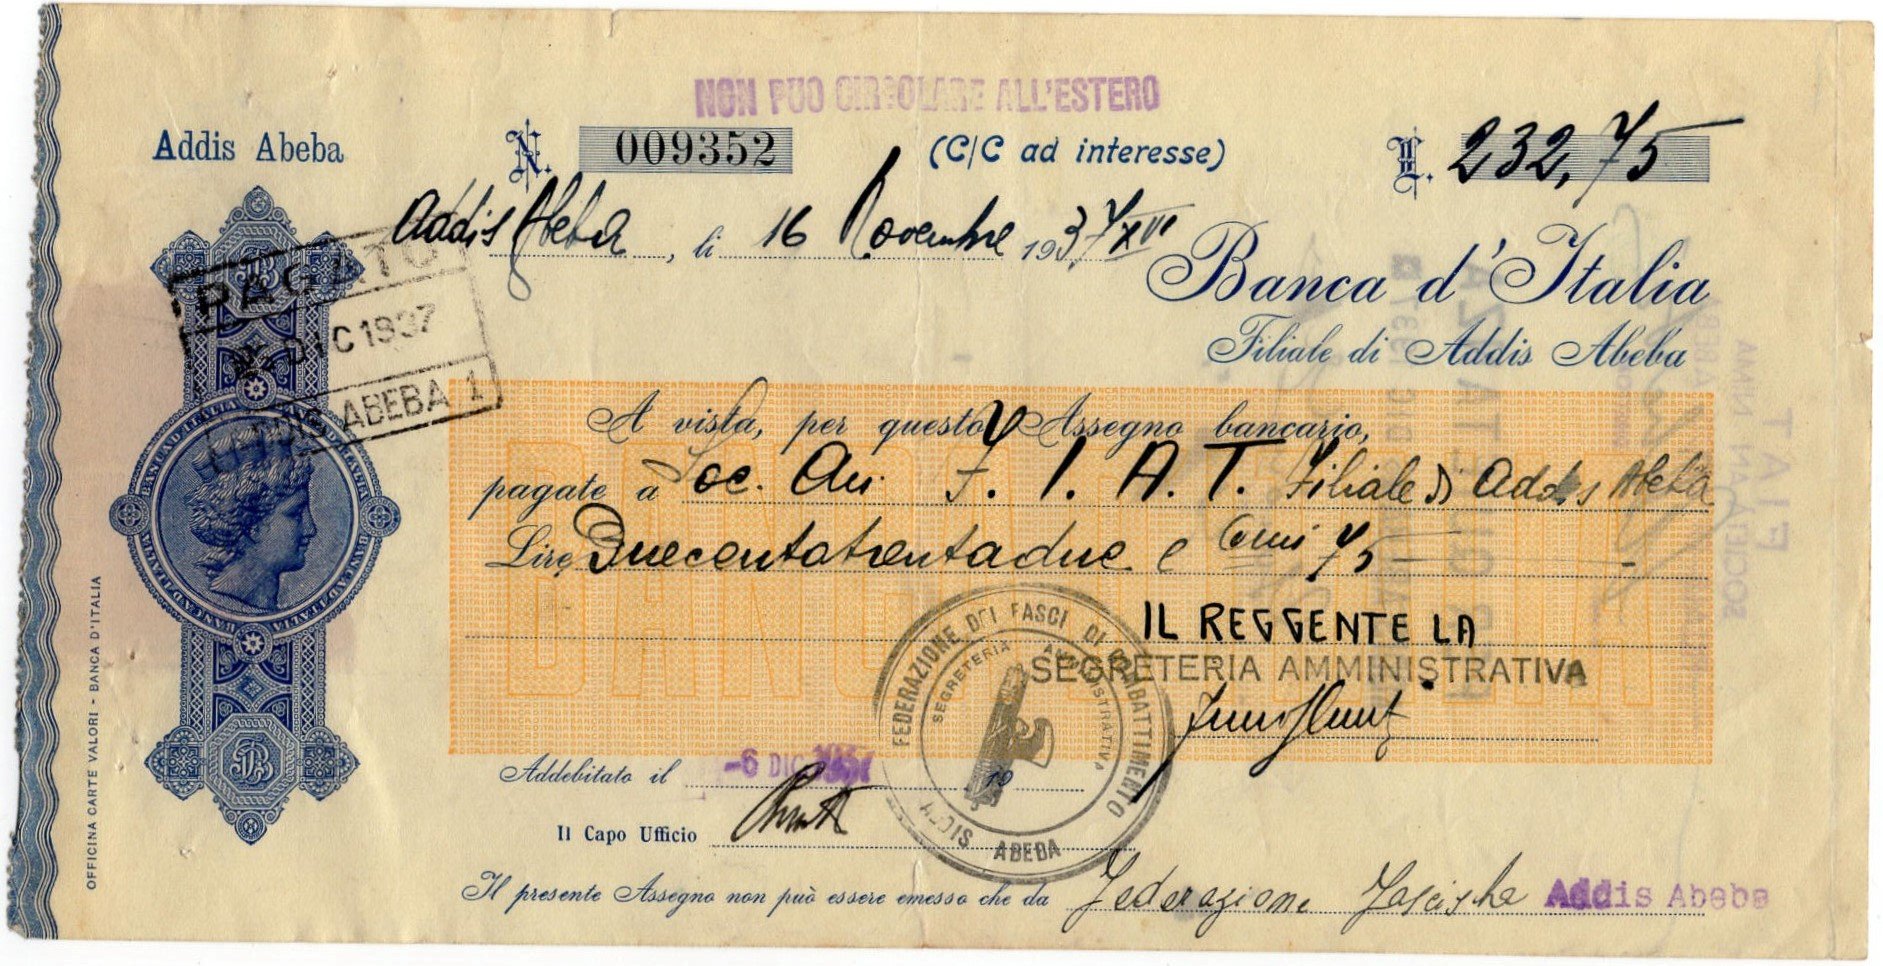 NON PUO CIRCOLARE ALL'ESTERO
Addis Abeba
N. 009352
(C/C ad interesse)
L. 232,75
Addis Abeba, li 16 Novembre 1937 XVI
Banca d'Italia
Filiale di Addis Abeba
PAGATO
DIC 1937
ADDIS ABEBA 1
A vista, per questo Assegno bancario,
pagate a Soc. An. F. I. A. T. Filiale di Addis Abeba
Lire Duecentotrentadue e Cmi 75
IL REGGENTE LA
SEGRETERIA AMMINISTRATIVA
FEDERAZIONE DEI FASCI DI COMBATTIMENTO
SEGRETERIA AMMINISTRATIVA
ABEBA
Addebitato il -6 DIC 1937 19
Il Capo Ufficio
Il presente Assegno non può essere emesso che da Federazione Fascista Addis Abeba
OFFICINA CARTE VALORI - BANCA D'ITALIA
BANCA D'ITALIA
FIAT
SOCIETÀ ANONIMA